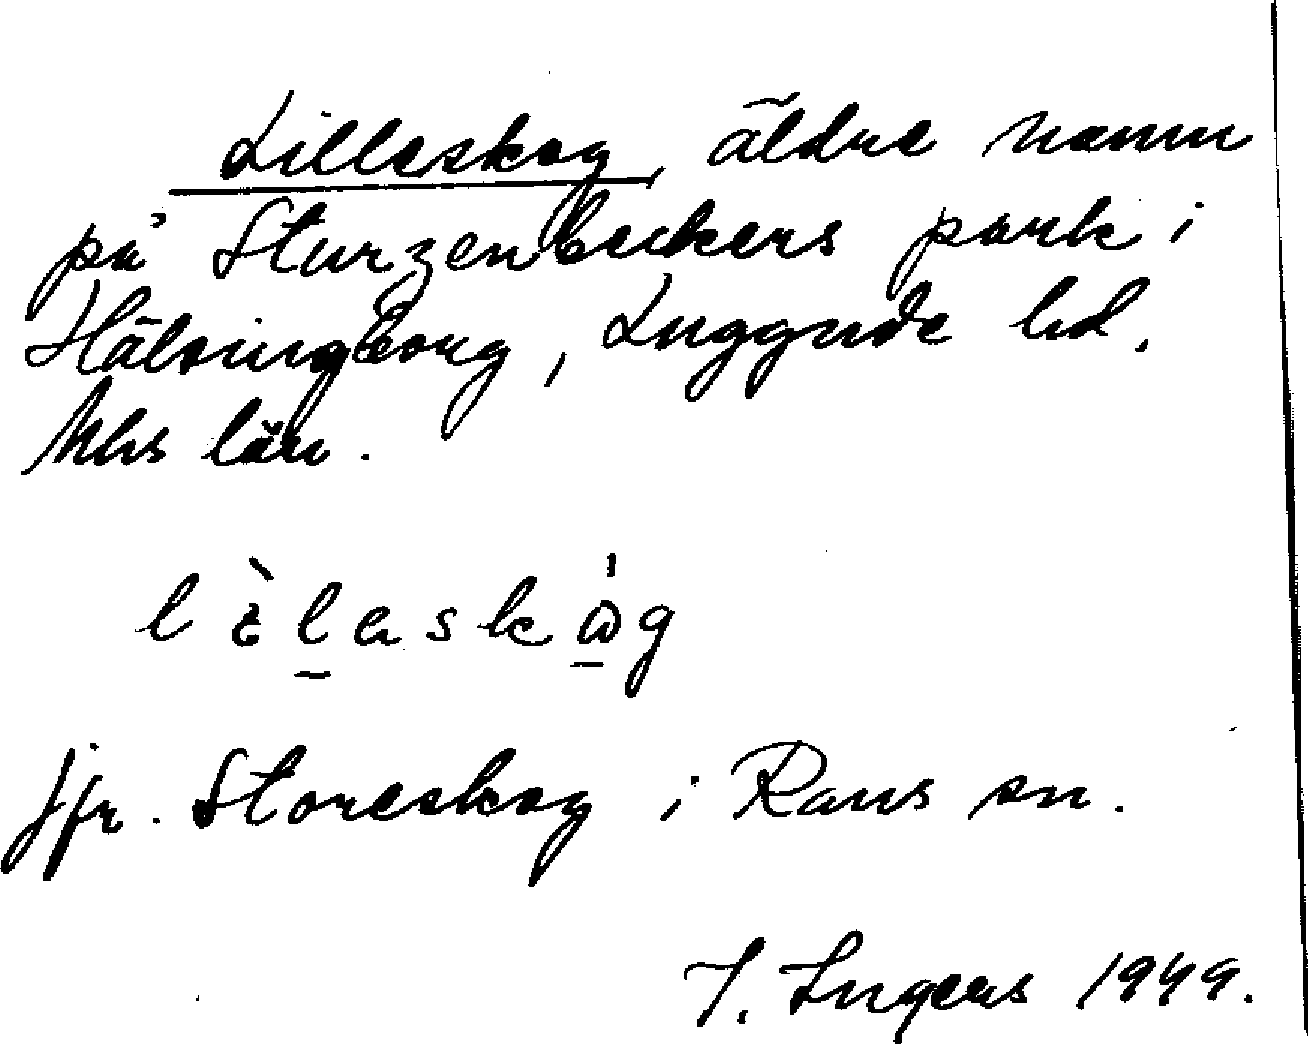 Lilleskog, äldre namn
på Sturzenbeckers park i
Hälsingborg, Luggude hd.
Mhs län.
lὲlaskωg
jfr. Storeskog i Raus sn.
I. Ingers 1949.